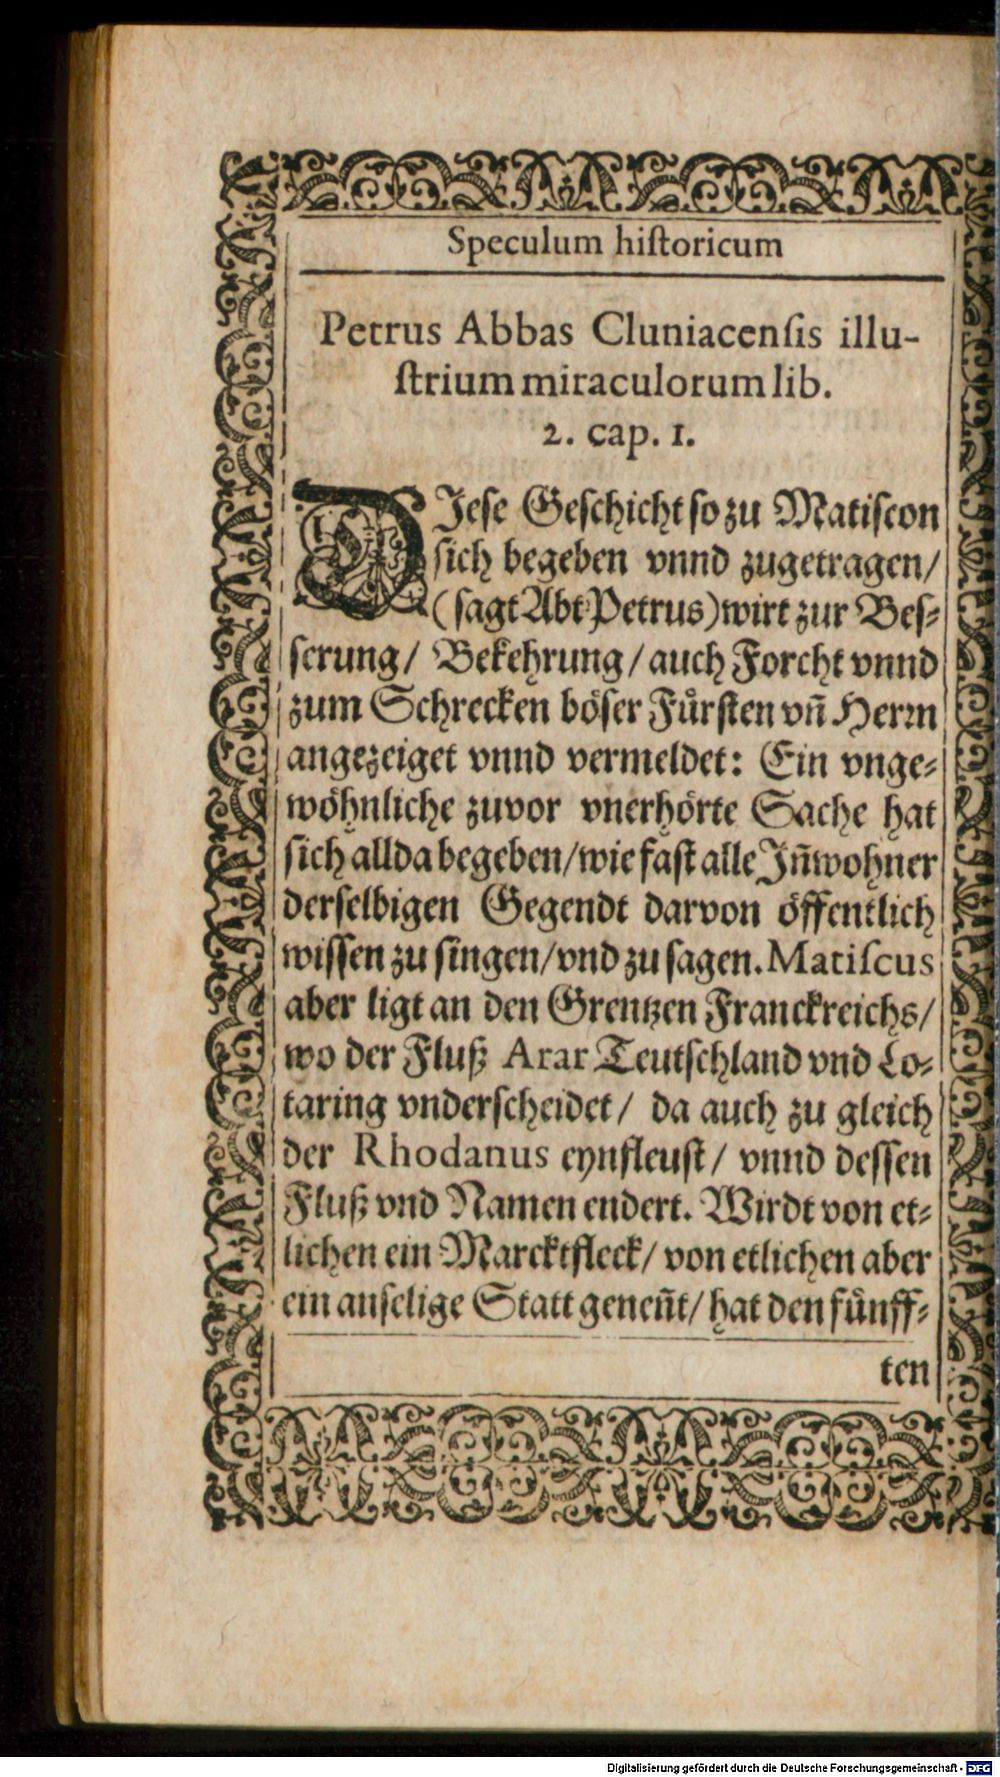 Speculum hiſtoricum
Petrus Abbas Cluniacenſis illu-
ſtrium miraculorum lib.
2. cap. 1.
DJeſe Geſchicht ſo zu Matiſcon
ſich begeben vnnd zugetragen/
(ſagt Abt Petrus) wirt zur Beſ-
ſerung/ Bekehrung/ auch Forcht vnnd
zum Schrecken böſer Fuͤrſten vn̄ Herꝛn
angezeiget vnnd vermeldet: Ein vnge-
wöhnliche zuvor vnerhörte Sache hat
ſich allda begeben/ wie faſt alle Jn̄wohner
derſelbigen Gegendt darvon öffentlich
wiſſen zu ſingen/ vnd zu ſagen. Matiſcus
aber ligt an den Grentzen Franckreichs/
wo der Fluß Arar Teutſchland vnd Lo-
taring vnderſcheidet/ da auch zu gleich
der Rhodanus eynfleuſt/ vnnd deſſen
Fluß vnd Namen endert. Wirdt von et-
lichen ein Marcktfleck/ von etlichen aber
ein anſelige Statt genen̄t/ hat den fuͤnff-
ten
Digitalisierung gefördert durch die Deutsche Forschungsgemeinschaft - DFG